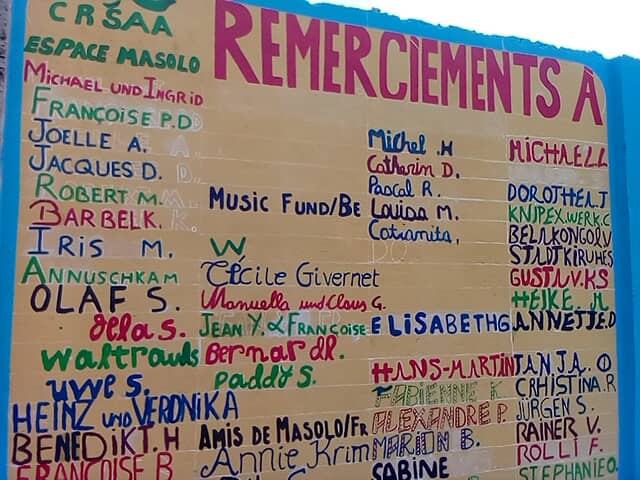 CRSAA
REMERCIEMENTS À
ESPACE MASOLO
MICHAEL UND INGRID
FRANÇOISE P.D
JOELLE A.
JACQUES D.
ROBERT M.
BARBEL K.
IRIS M.
ANNUSCHKA M
OLAF S.
Jella S.
Waltrauds
UWE S.
HEINZ UND VERONIKA
BENEDIKT.H
FRANÇOISE B
MUSIC FUND/Be
W
Cécile Givernet
Manuella und Claus G.
JEAN Y. & FRANCOISE
Bernar dl.
Paddy S.
AMIS DE MASOLO/FR
Annie Krim
Michel .H
Catherin D.
Pascal R.
Louisa M.
Catianita,
ELISABETH G
HANS-MARTIN
FABIENNE K
ALEXANDRE P.
MARION B.
SABINE
MICHAEL L
DOROTHEA.J
KNIPEX.WERK.C
BELAKONGO.V
STADTKIRUHES
GUSTAV.KS
HEIKE. M
ANNETTE.D
TANJA. O
CRHISTINA.R
JÜRGEN S.
RAINER V.
ROLLI F.
STEPHANIE O.